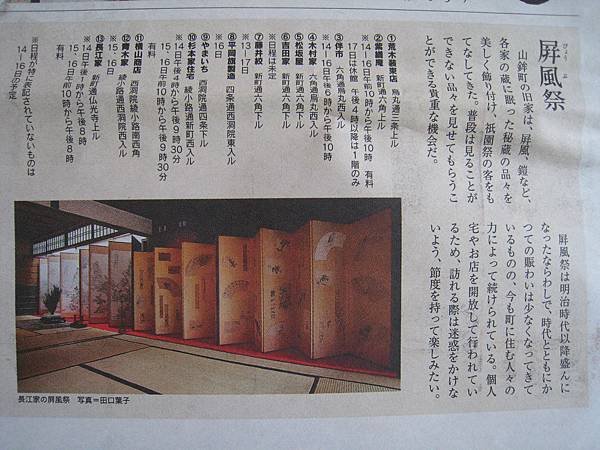 屏風祭
びょうぶ
山鉾町の旧家は、屏風、鎧など、
各家の蔵に眠った秘蔵の品々を
美しく飾り付け、祇園祭の客をも
てなしてきた。普段は見ることが
できない品々を見せてもらうこ
とができる貴重な機会だ。
屏風祭は明治時代以降盛んに
なったならわしで、時代とともにか
つての賑わいは少なくなってきて
いるものの、今も町に住む人々の
力によって続けられている。個人
宅やお店を開放して行われてい
るため、訪れる際は迷惑をかけな
いよう、節度を持って楽しみたい。
①荒木装束店 烏丸通三条上ル
②紫織庵 新町通六角上ル
*14—16日午前10時から午後10時 有料
17日は休館 午後4時以降は1階のみ
③伴市 六角通烏丸西入ル
*14—16日午後6時から午後10時
④木村家 六角通烏丸西入ル
⑤松坂屋 新町通六角下ル
⑥吉田家 新町通六角下ル
※日程は未定
⑦藤井絞 新町通六角下ル
*13—17日
⑧平岡旗製造 四条通西洞院東入ル
*16日
⑨やまいち 西洞院通四条下ル
*14日午後4時から午後9時30分
⑩杉本家住宅 綾小路通新町西入ル
*14、15、16日午前10時から午後9時30分
有料
⑪横山商店 西洞院綾小路南西角
*15、16日
⑫青木家 綾小路通西洞院西入ル
*15、16日
⑬長江家 新町通仏光寺上ル
*14日午後1時から午後8時
15、16日午前10時から午後8時
有料
※日程が特に表記されていないものは
14—16日の予定
長江家の屏風祭 写真=田口葉子